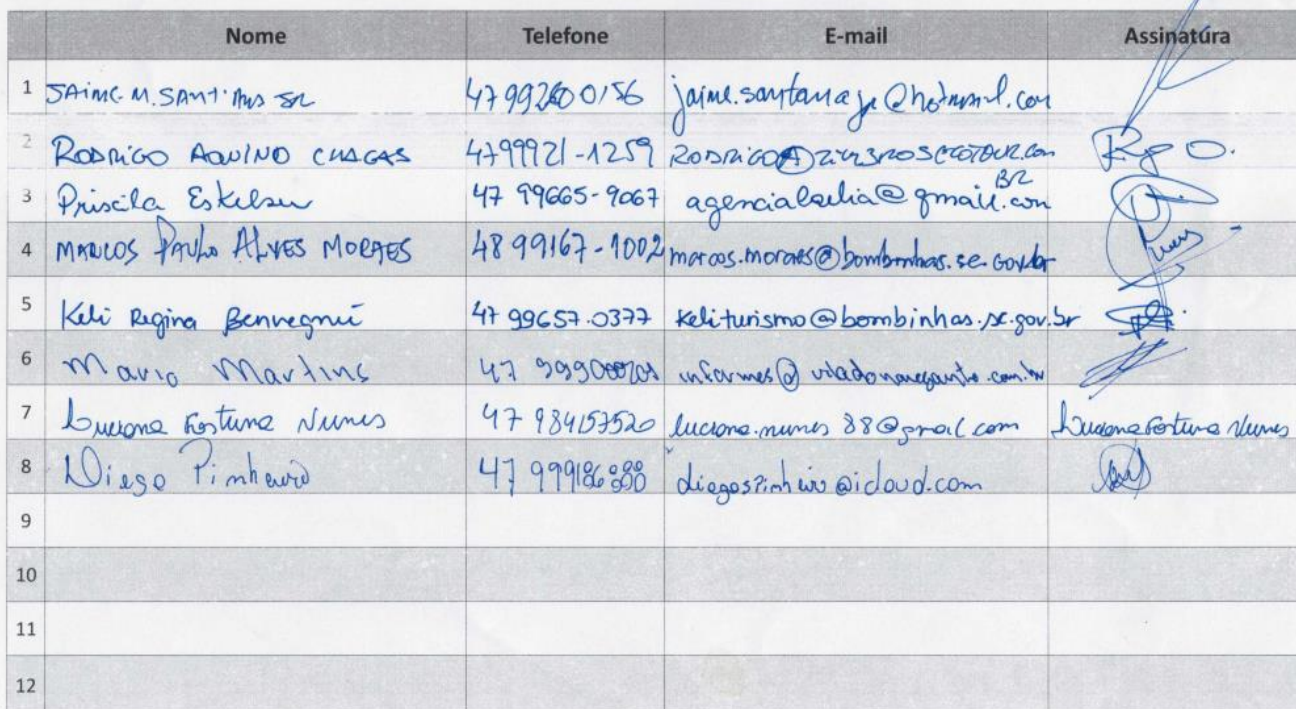 Nome Telefone E-mail Assinatura
1 JAIME M. 47 99260 0156 jaime.santanajr@hotmail.com
2 RODRIGO AQUINO CHAGAS 4799921-1259
3 Priscila Eskelsen 47 99665-9067
4 MARCOS PAULO ALVES MORAES 48 99167-1002 marcos.moraes@bombinhas.sc.gov.br
5 Keli Regina Benvegnú 47 99657.0377 keliturismo@bombinhas.sc.gov.br
6 Mario Martins 47
7 Luciana Fortuna Nunes 47 984157520 luciana.nunes88@gmail.com Luciana Fortuna Nunes
8 Diego Pinheiro 47 diegospinheiro@icloud.com
9
10
11
12